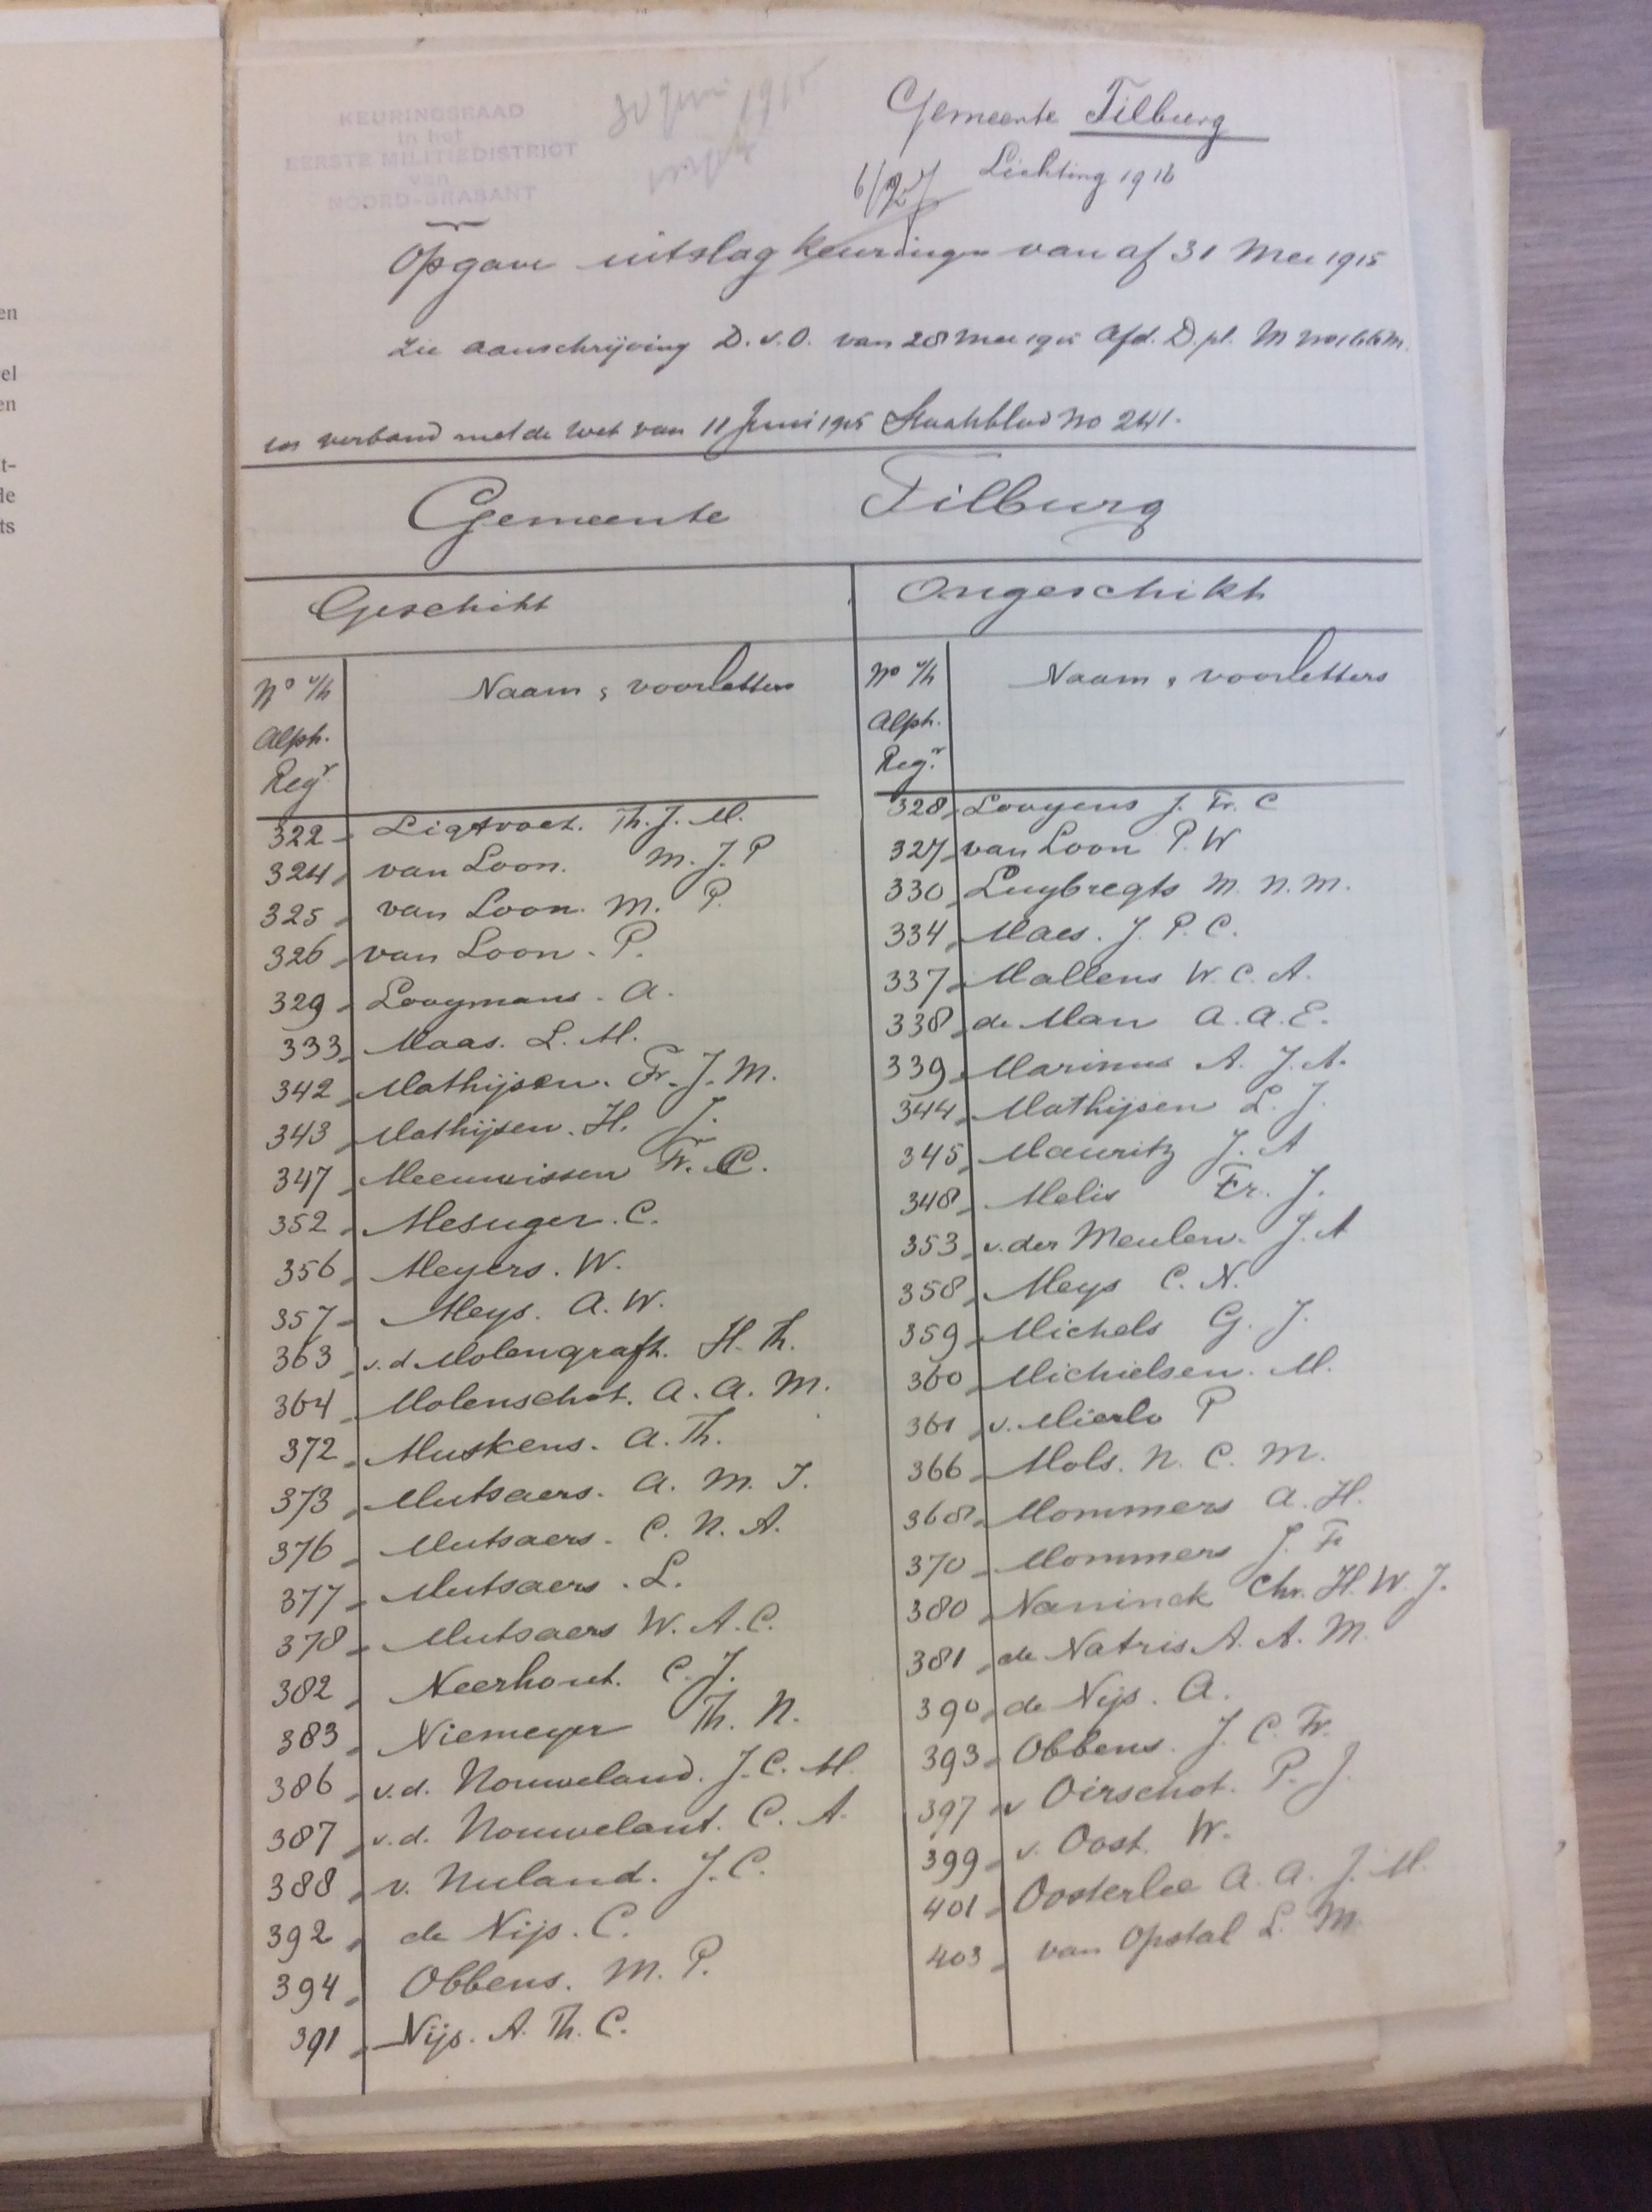 en
el
en
t-
de
ts
KEURINGSRAAD
in het
EERSTE MILITIEDISTRICT
van
NOORD-BRABANT
30 Juni 1915
Gemeente Tilburg
Lichting 1916
Opgave uitslag keuringen van af 31 Mei 1915
Zie aanschrijving D.v.O. van 28 Mei 1915 Afd. D.pl. M no 166 M.
in verband met de Wet van 11 Juni 1915 Staatsblad No 241.
Gemeente Tilburg
Geschikt
No v/h Alph. Regr
Naam, voorletters
322 Ligtvoet. Th. J. M.
324 van Loon. M. J. P
325 van Loon. M. P.
326 van Loon. P.
329 Looymans. A.
333 Maas. L. M.
342 Mathijsen. Fr. J. M.
343 Mathijsen. H. J.
347 Meeuwissen Fr. C.
352 Mesuger. C.
356 Meyers. W.
357 Meys. A. W.
363 v. d Molengraft. H. Th.
364 Molenschot. A. A. M.
372 Muskens. A. Th.
373 Mutsaers. A. M. J.
376 Mutsaers. C. N. A.
377 Mutsaers. L.
378 Mutsaers W. A. C.
382 Neerhout. C. J.
383 Niemeyer Th. N.
386 v.d. Nouweland. J. C. M.
387 v.d. Nouwelant. C. A.
388 v. Nuland. J. C.
392 de Nijs. C.
394 Obbens. M. P.
391 Nijs. A. Th. C.
Ongeschikt
No v/h Alph. Regr.
Naam, voorletters
328 Looyens J. Fr. C
327 van Loon P. W
330 Luybregts M. N. M.
334 Maes. J. P. C.
337 Mallens W. C. A.
338 de Man A. A. E.
339 Marinus A. J. A.
344 Mathijsen L. J.
345 Mauritz J. A
348 Melis Fr. J.
353 v. der Meulen. J. A
358 Meys C. N.
359 Michels G. J.
360 Michielsen. M.
361 v. Mierlo P
366 Mols. N. C. M.
368 Mommers A. H.
370 Mommers J. Fr
380 Naninck Chr. H. W. J.
381 de Natris A. A. M.
390 de Nijs. A.
393 Obbens. J. C. Fr.
397 v Oirschot. P. J.
399 v. Oost. W.
401 Oosterlee A. A. J. M.
403 van Opstal L. M.